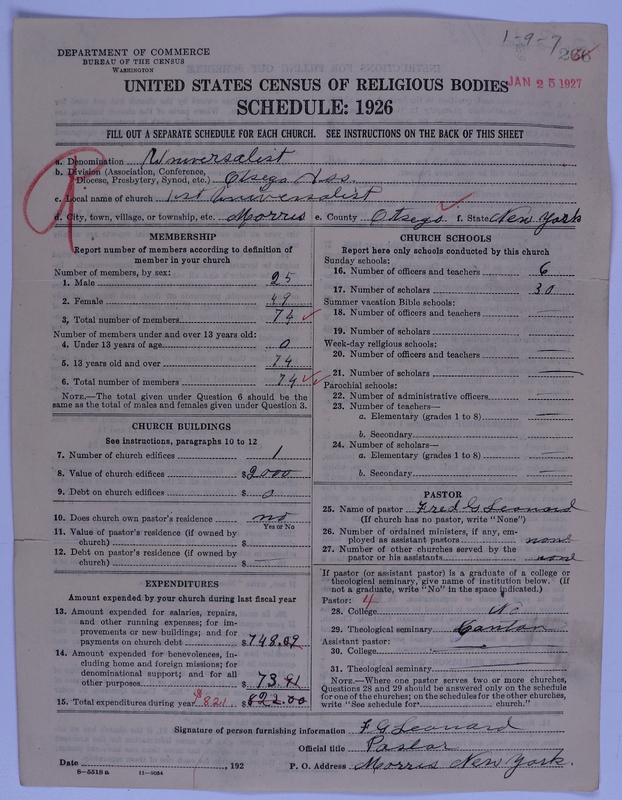 1-9-7
266
DEPARTMENT OF COMMERCE
BUREAU OF THE CENSUS
WASHINGTON
UNITED STATES CENSUS OF RELIGIOUS BODIES
JAN 25 1927
SCHEDULE: 1926
FILL OUT A SEPARATE SCHEDULE FOR EACH CHURCH. SEE INSTRUCTIONS ON THE BACK OF THIS SHEET
a. Denomination Universalist
b. Division (Association, Conference, Diocese, Presbytery, Synod, etc.) Otsego Ass.
c. Local name of church 1st Universalist
d. City, town, village, or township, etc. Morris e. County Otsego f. State New York
MEMBERSHIP
Report number of members according to definition of
member in your church
Number of members, by sex:
1. Male 25
2. Female 49
3. Total number of members 74
Number of members under and over 13 years old:
4. Under 13 years of age 0
5. 13 years old and over 74
6. Total number of members 74
NOTE.—The total given under Question 6 should be
same as the total of males and females given under Question 3.
CHURCH BUILDINGS
See instructions, paragraphs 10 to 12
7. Number of church edifices 1
8. Value of church edifices $2000
9. Debt on church edifices $ 0
10. Does church own pastor's residence no
Yes or No
11. Value of pastor's residence (if owned by
church) $
12. Debt on pastor's residence (if owned by
church) $
EXPENDITURES
Amount expended by your church during last fiscal year
13. Amount expended for salaries, repairs,
and other running expenses; for im-
provements or new buildings; and for
payments on church debt $748.09
14. Amount expended for benevolences, in-
cluding home and foreign missions; for
denominational support; and for all
other purposes 73.91
15. Total expenditures during year $821 $822.00
CHURCH SCHOOLS
Report here only schools conducted by this church
Sunday schools:
16. Number of officers and teachers 6
17. Number of scholars 30
Summer vacation Bible schools:
18. Number of officers and teachers
19. Number of scholars
Week-day religious schools:
20. Number of officers and teachers
21. Number of scholars
Parochial schools:
22. Number of administrative officers
23. Number of teachers—
a. Elementary (grades 1 to 8)
b. Secondary
24. Number of scholars—
a. Elementary (grades 1 to 8)
b. Secondary
PASTOR
25. Name of pastor Fred G Leonard
(If church has no pastor, write "None")
26. Number of ordained ministers, if any, em-
ployed as assistant pastors none
27. Number of other churches served by the
pastor or his assistants none
If pastor (or assistant pastor) is a graduate of a college or
theological seminary, give name of institution below. (If
not a graduate, write "No" in the space indicated.)
Pastor: 4
28. College No
29. Theological seminary Canton
Assistant pastor:
30. College
31. Theological seminary
NOTE.—Where one pastor serves two or more churches,
Questions 28 and 29 should be answered only on the schedule
for one of the churches; on the schedules for the other churches,
write "See schedule for church."
Signature of person furnishing information F G Leonard
Official title Pastor
Date , 192 P. O. Address Morris New York.
8-5518a 11-9034